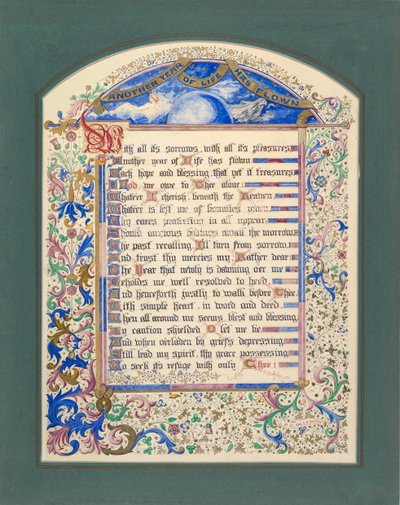 ANOTHER YEAR OF LIFE HAS FLOWN
With all its sorrows, with all its pleasures,
Another year of Life has flown
Each hope and blessing that yet it treasures
God, we owe to Thee alone;
Whateer I cherish beneath the Heaven
Whateer is left me of
My cares protecting in all appear
Should anxious bodings await the morrow
The past recalling, I'll turn from sorrow
And trust thy mercies my Father dear
The Year that newly is dawning oer me
Beholds me well resolved to heed,
And henceforth justly to walk before Thee,
With simple heart in word and deed.
Then all around me seems blest and blessing
By caution shielded O let me be,
And when oerladen by griefs depressing,
Still lead my spirit, thy grace possessing
To seek its refuge with only Thee!